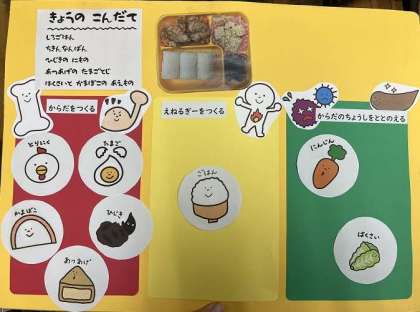 きょうの こんだて
しろごはん
ちきんなんばん
ひじきの にもの
あつあげの たまごとじ
はくさいと かまぼこの あえもの
からだをつくる
えねるぎーをつくる
からだのちょうしをととのえる
とりにく
たまご
ごはん
にんじん
かまぼこ
ひじき
はくさい
あつあげ